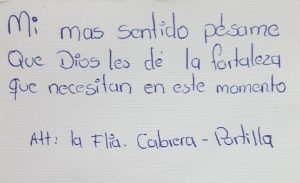 Mi mas sentido pésame
Que Dios les dé la fortaleza
que necesitan en este momento
Att: la Flia. Cabrera - Portilla